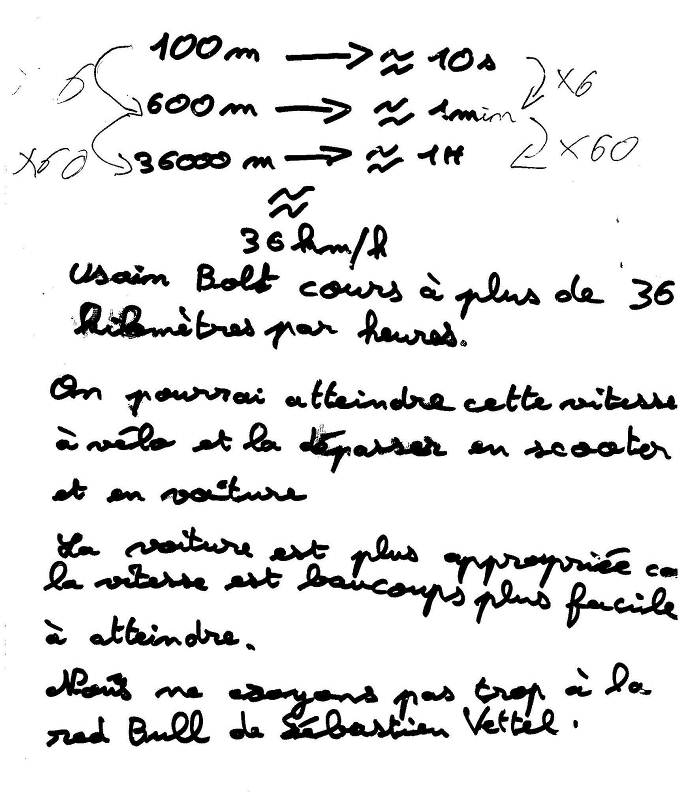 100m → ≈ 10s
6 ×6
600m → ≈ 1min
×60 ×60
36000 m → ≈ 1H
≈
36 km/h
Usain Bolt cours à plus de 36
kilomètres par heures.
On pourrai atteindre cette vitesse
à vélo et la dépasser en scooter
et en voiture
La voiture est plus appropriée ca
la vitesse est beaucoups plus facile
à atteindre.
Nous ne croyons pas trop à la
red Bull de Sébastien Vettel.